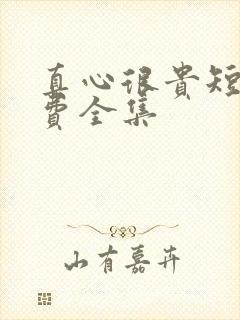 真心很贵短
费全集
山有嘉卉